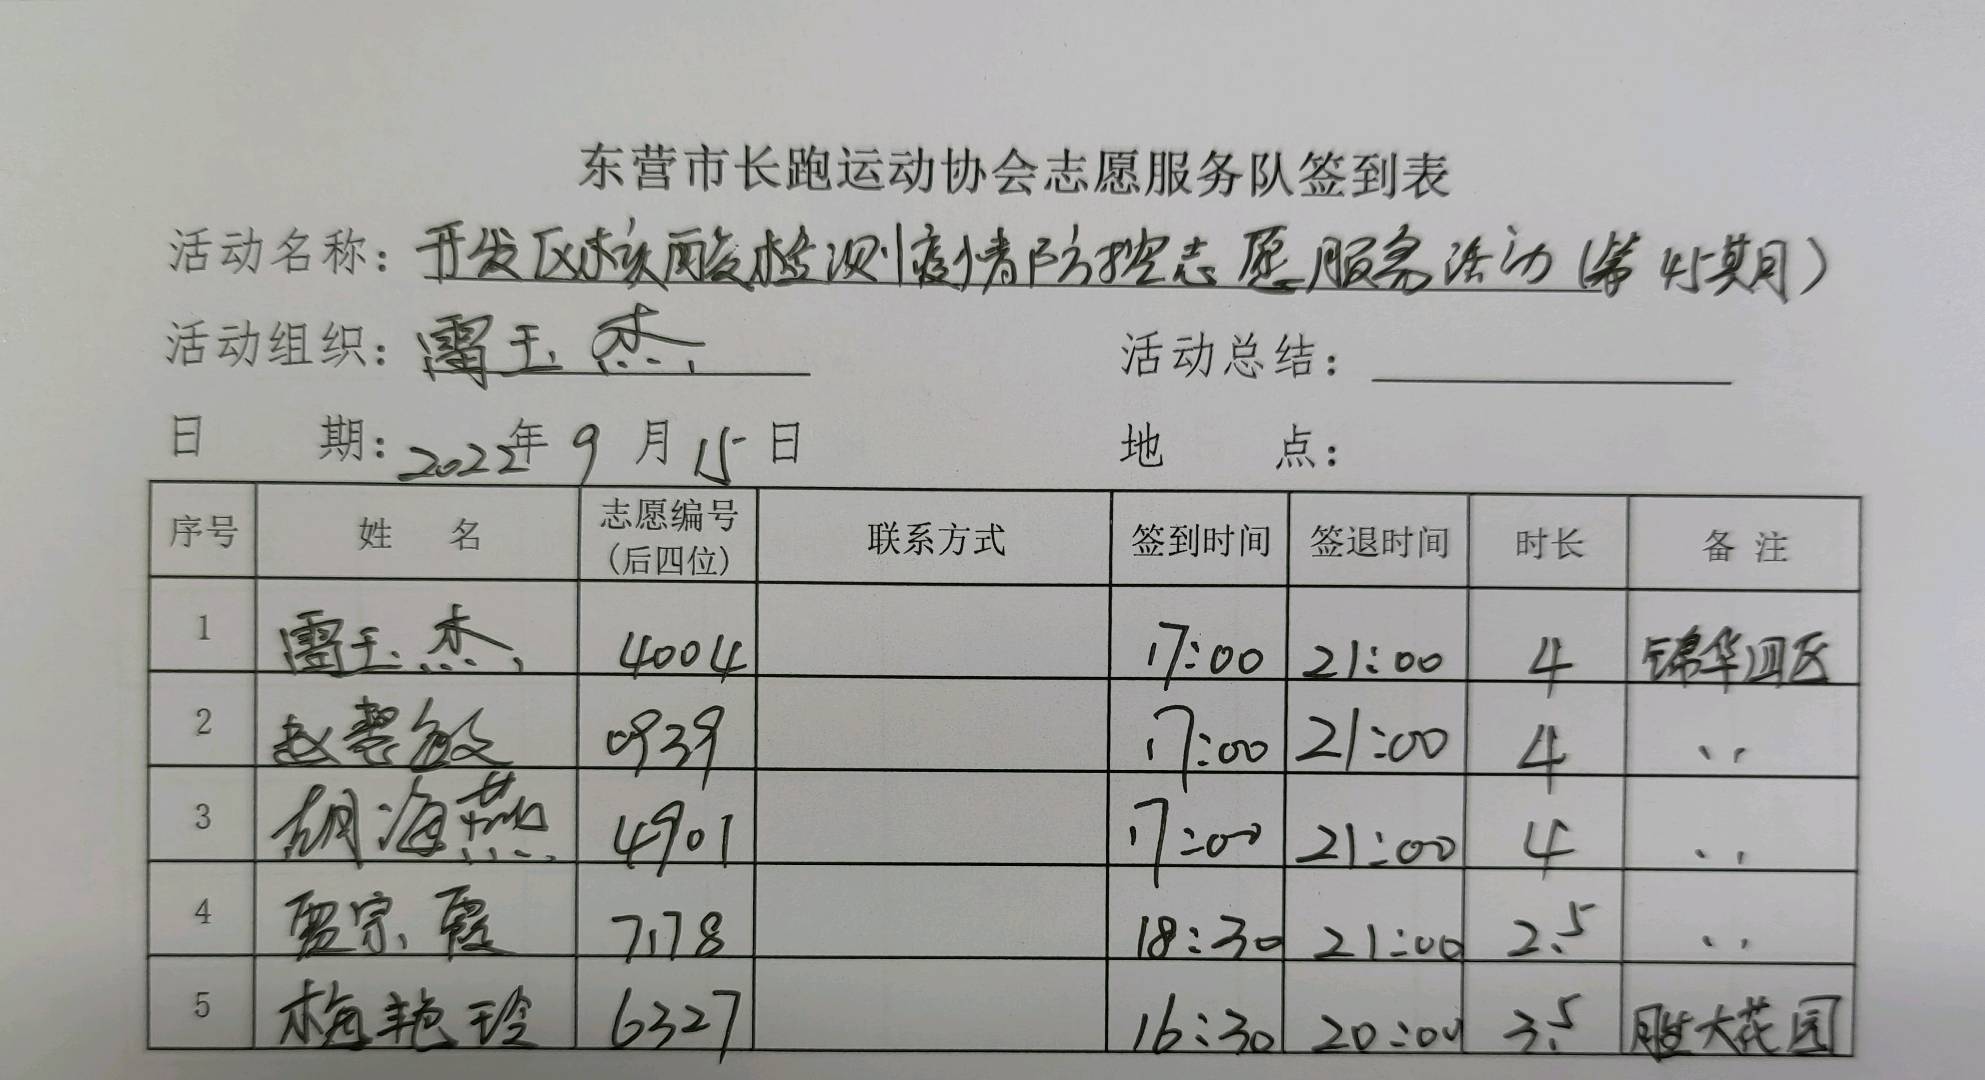 东营市长跑运动协会志愿服务队签到表
活动名称：开发区核酸检测疫情防控志愿服务活动（第45期）
活动组织：雷玉杰 活动总结：
日 期：2022年9月15日 地 点：
序号 姓 名 志愿编号（后四位） 联系方式 签到时间 签退时间 时长 备 注
1 雷玉杰 4004 17:00 21:00 4 锦华四区
2 赵 敏 0939 17:00 21:00 4 、、
3 胡海燕 4901 17:00 21:00 4 、、
4 贾宗霞 7178 18:30 21:00 2.5 、、
5 梅艳玲 6327 16:30 20:00 3.5 胜大花园